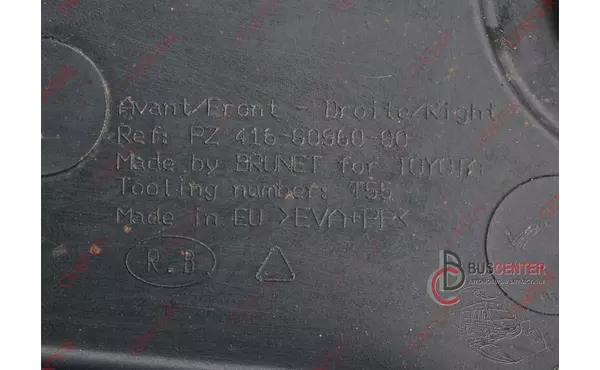 Avant/Front - Droite/Right
Ref: PZ 416-60960-00
Made by BRUNET for TOYOTA
Tooling number: T55
Made in EU >EVA+PP<
R.B
BUSCENTER